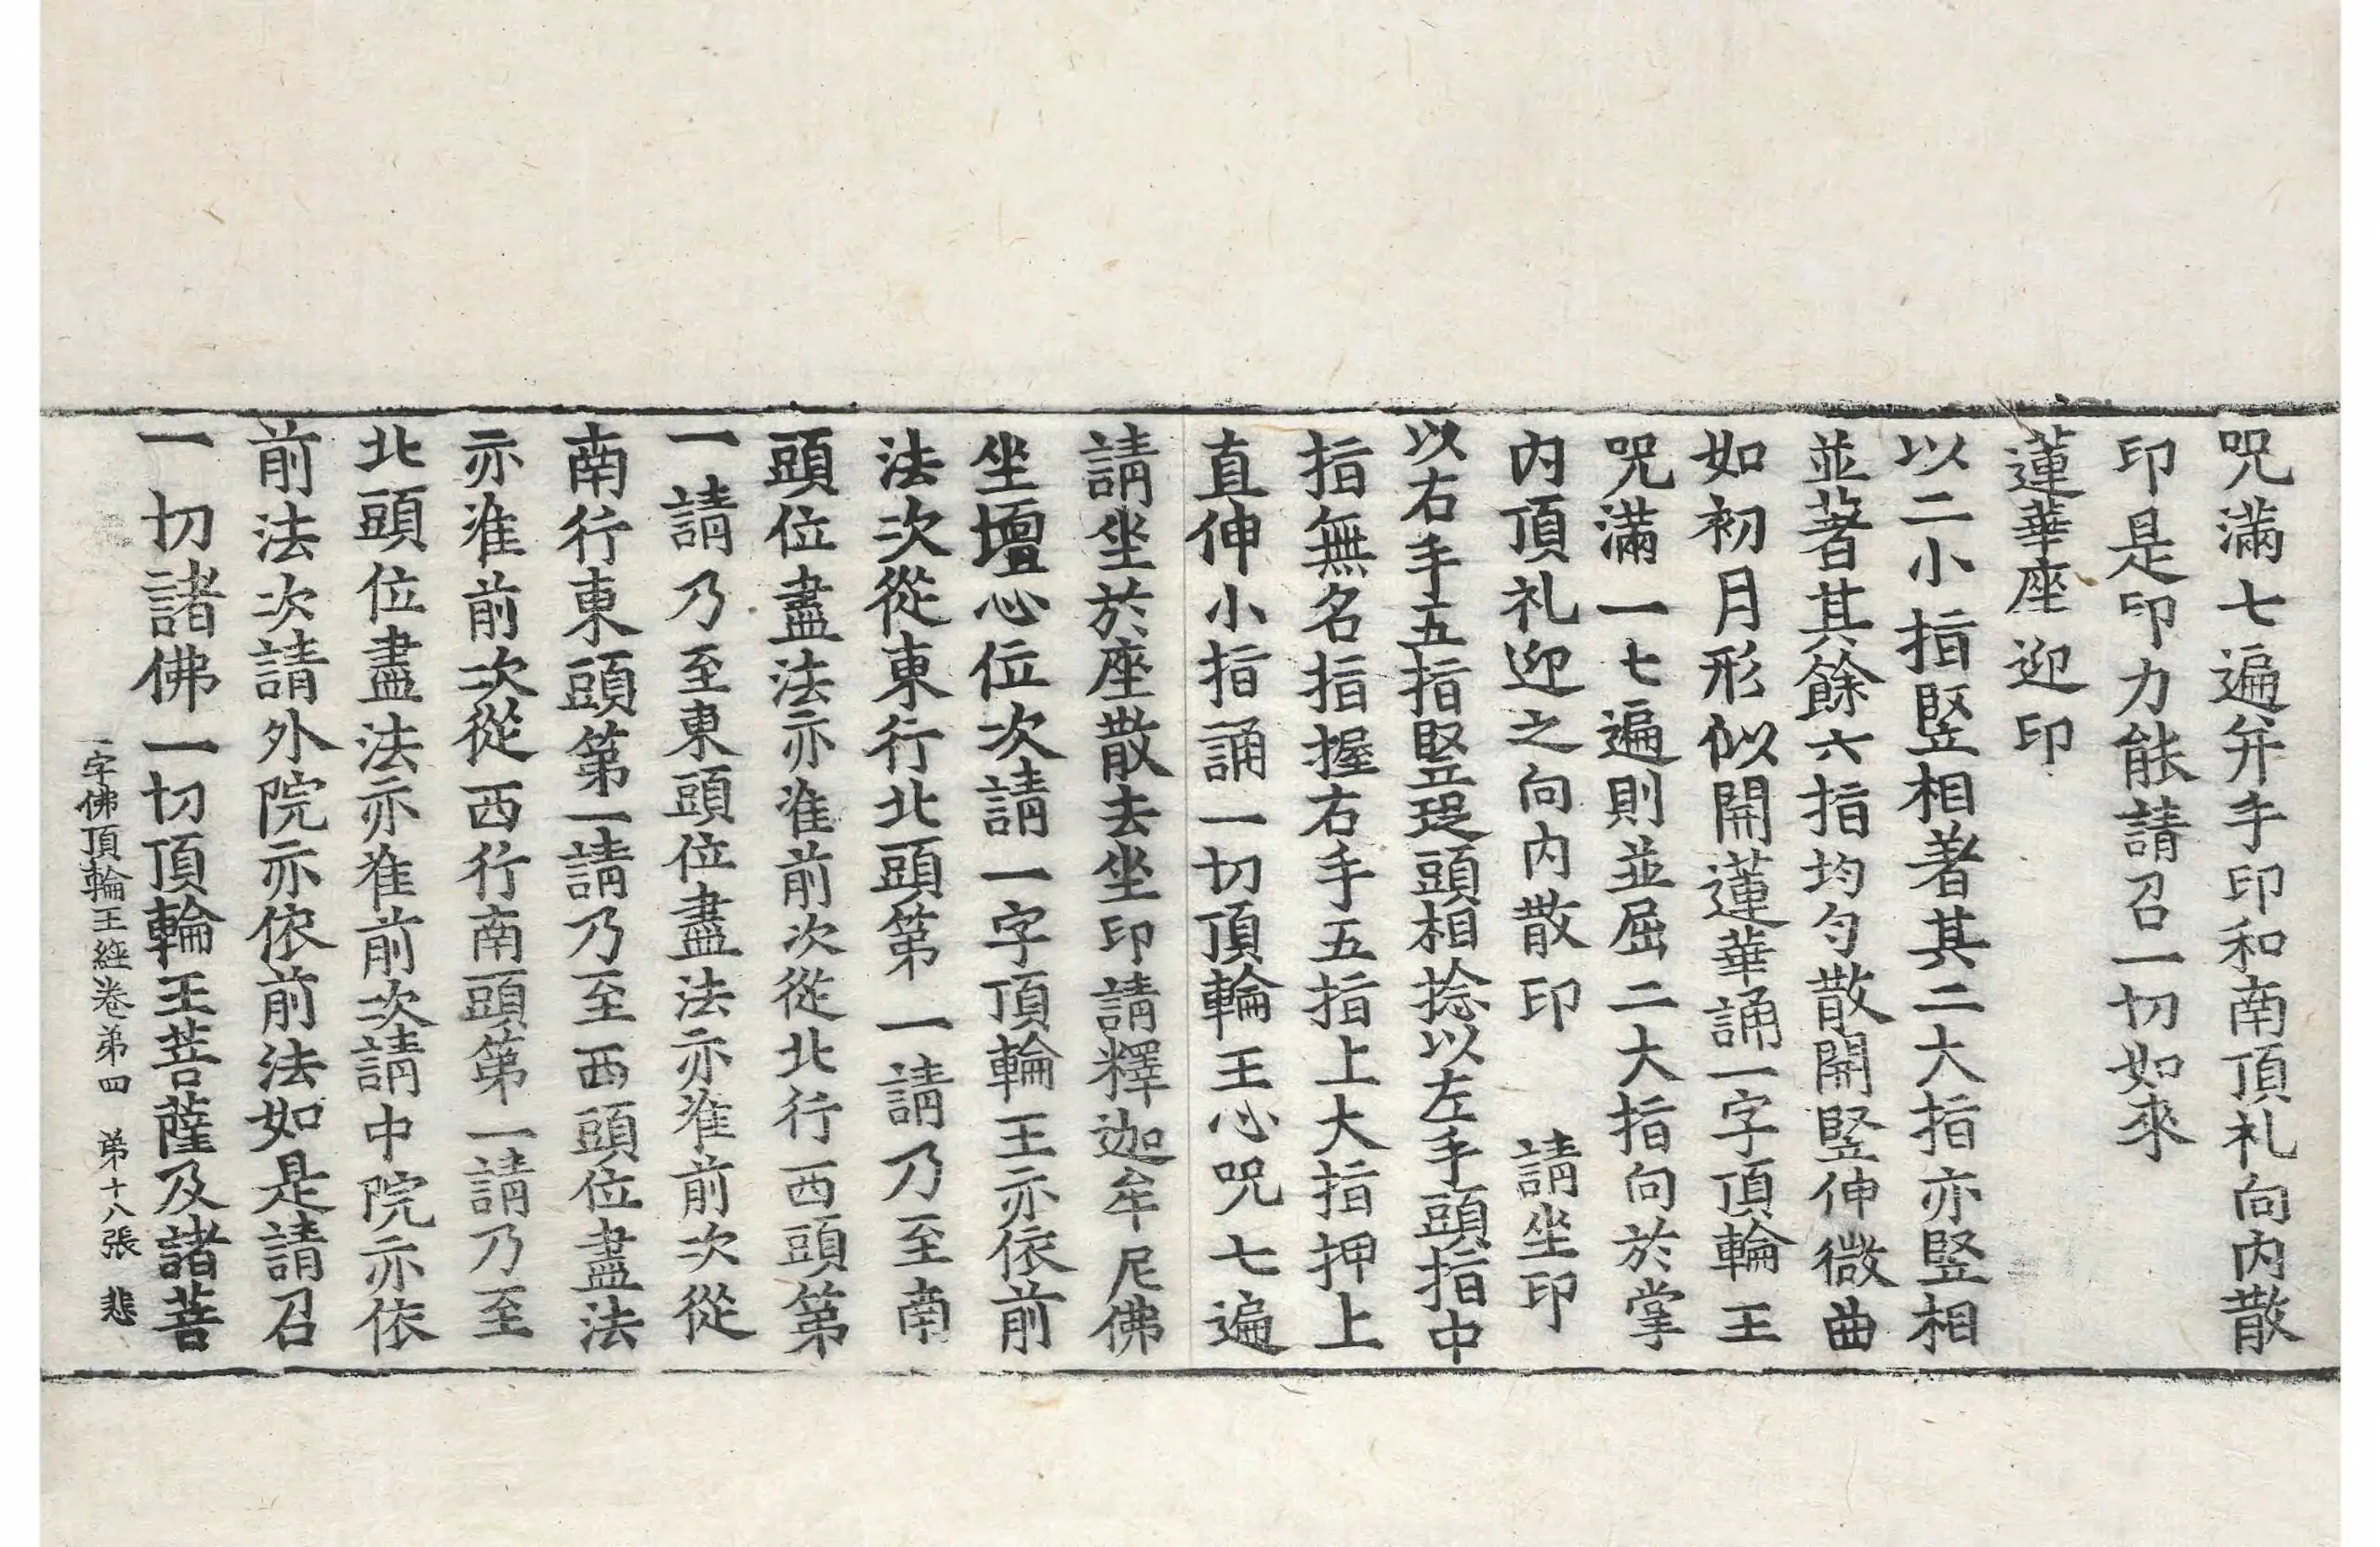 呪滿七遍弁手印和南頂礼向内散
印是印力能請召一切如來
蓮華座迎印
以二小指竪相著其二大指亦竪相
並著其餘六指均勻散開竪伸微曲
如初月形似開蓮華誦一字頂輪王
呪滿一七遍則並屈二大指向於掌
内頂礼迎之向内散印 請坐印
以右手五指竪頭相捻以左手頭指中
指無名指握右手五指上大指押上
直伸小指誦一切頂輪王心呪七遍
請坐於座散去坐印請釋迦牟尼佛
坐壇心位次請一字頂輪王亦依前
法次從東行北頭第一請乃至南
頭位盡法亦准前次從北行西頭第
一請乃至東頭位盡法亦准前次從
南行東頭第一請乃至西頭位盡法
亦准前次從西行南頭第一請乃至
北頭位盡法亦准前次請中院亦依
前法次請外院亦依前法如是請召
一切諸佛一切頂輪王菩薩及諸菩
一字佛頂輪王経卷弟四 弟十八張 悲